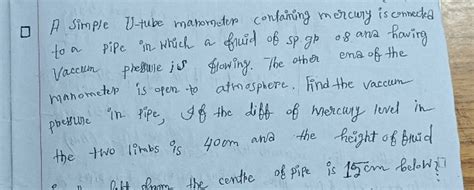 A Simple U-tube manometer containing mercury is connected
to a pipe in which a fluid of sp. gr 0.8 and having
Vaccum pressure is flowing. The other end of the
manometer is open to atmosphere. Find the vaccum
pressure in pipe, If the diff of mercury level in
the two limbs is 40cm and the height of fluid
left from the centre of pipe is 15cm below